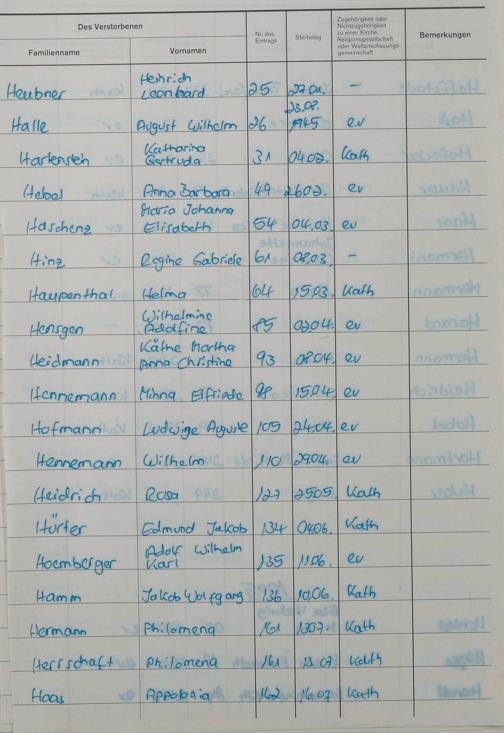 Des Verstorbenen
Familienname Vornamen Nr. des Eintrags Sterbetag Zugehörigkeit oder Nichtzugehörigkeit zu einer Kirche, Religionsgesellschaft oder Weltanschauungsgemeinschaft Bemerkungen
Heinrich
Heubner Leonhard 25 27.01. –
23.08.
Halle August Wilhelm 26 1945 ev
Katharina
Hartenstein Gertruda 31 04.02. Kath
Hebel Anna Barbara 49 26.02. ev
Maria Johanna
Haschenz Elisabeth 54 04.03. ev
Hinz Regine Gabriele 61 08.03. –
Haupenthal Helma 64 15.03. Kath
Wilhelmine
Hensgen Adolfine 85 02.04. ev
Käthe Martha
Heidmann Anna Christine 93 08.04. ev
Hennemann Minna Elfriede 98 15.04. ev
Hofmann Ludwige Auguste 109 24.04. ev
Hennemann Wilhelm 110 29.04. ev
Heidrich Rosa 127 25.05. Kath
Hürter Edmund Jakob 134 04.06. Kath
Adolf Wilhelm
Hoemberger Karl 135 11.06. ev
Hamm Jakob Wolfgang 136 10.06. Kath
Hermann Philomena 161 13.07. Kath
Herrschaft Philomena 161 13.07 Kath
Haas Appolonia 162 16.07 Kath